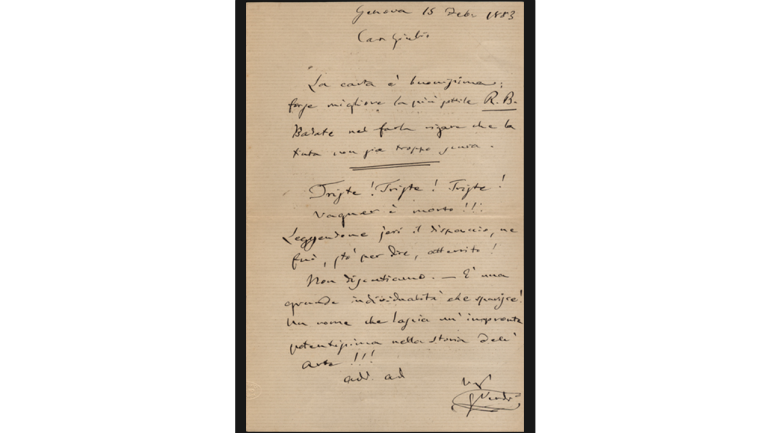 Genova 15 Feb. 1883
Car Giulio
La carta è buonissima;
forse migliore la più sottile R. B.
Badate nel farla rigare che la
tinta non sia troppo scura.
Triste! Triste! Triste!
Vagner è morto!!!
Leggendone jeri il dispaccio, ne
fui, sto' per dire, atterrito!
Non discutiamo. — E' una
grande individualità che sparisce!
Un nome che lascia un'impronta
potentissima nella storia dell'
Arte!!!
ad ad
GVerdi